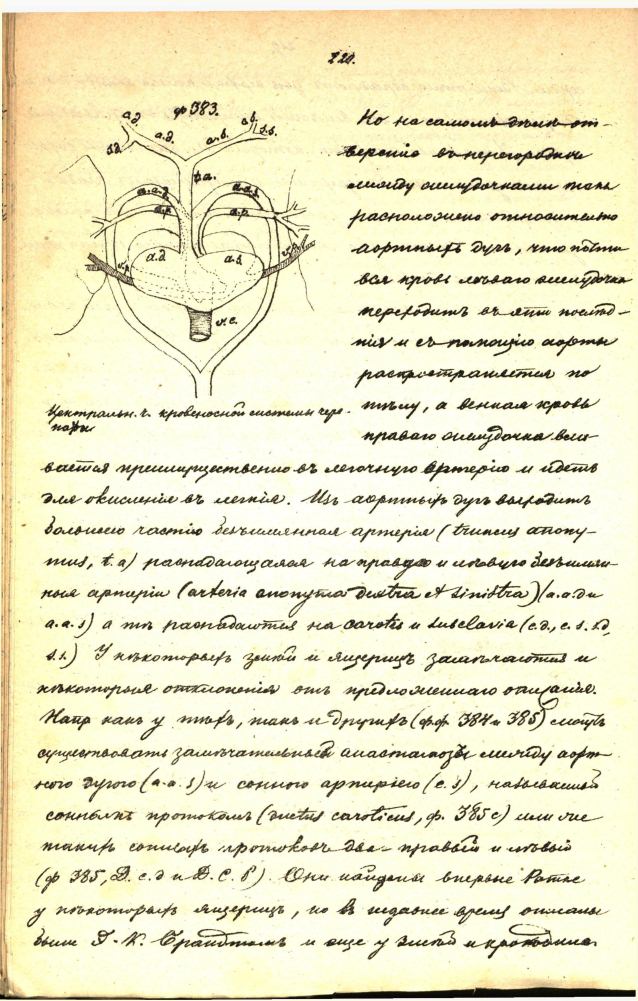 220.
ф 383.
a.d. a.d. a.s. s.s.
s.d.
t.a.
a.a.d. a.a.s.
a.p. a.p.
a.d. a.s.
v.p. v.p.
v.c.
Центральн. ч. кровеносной системы чере-
пахи
Но на самомъ дѣлѣ от-
верстіе въ перегородкѣ
между желудочками такъ
расположено относительно
аортныхъ дугъ, что почти
вся кровь лѣваго желудочка
переходитъ въ эти послѣд-
нія и съ помощію аорты
распространяется по
тѣлу, а венная кровь
праваго желудочка вли-
вается преимущественно въ легочную артерію и идетъ
для окисленія въ легкія. Изъ аортныхъ дугъ выходитъ
большею частію безъимянная артерія (truncus anony-
mus, t.a) распадающаяся на правую и лѣвую безъимян-
ныя артеріи (arteria anonyma dextra et sinistra) (a.a.d и
a.a.s) а тѣ распадаются на carotis и subclavia (c.d, c.s. s.d,
s.s.) У нѣкоторыхъ змѣй и ящерицъ замѣчаются и
нѣкоторыя отклоненія отъ предложеннаго описанія.
Напр какъ у тѣхъ, такъ и другихъ (фф 384 и 385) могутъ
существовать замѣчательный анастомозъ между аорт-
ною дугою (a.a.s) и сонною артеріею (c.s), называемый
соннымъ протокомъ (ductus caroticus, ф. 385 c) или же
такихъ сонныхъ протоковъ два - правый и лѣвый
(ф 385, D.c.d и D.C.S). Они найдены впервые Ратке
у нѣкоторыхъ ящерицъ, но въ недавнее время описаны
были Э.К. Брандтомъ и еще у змѣй и крокодила